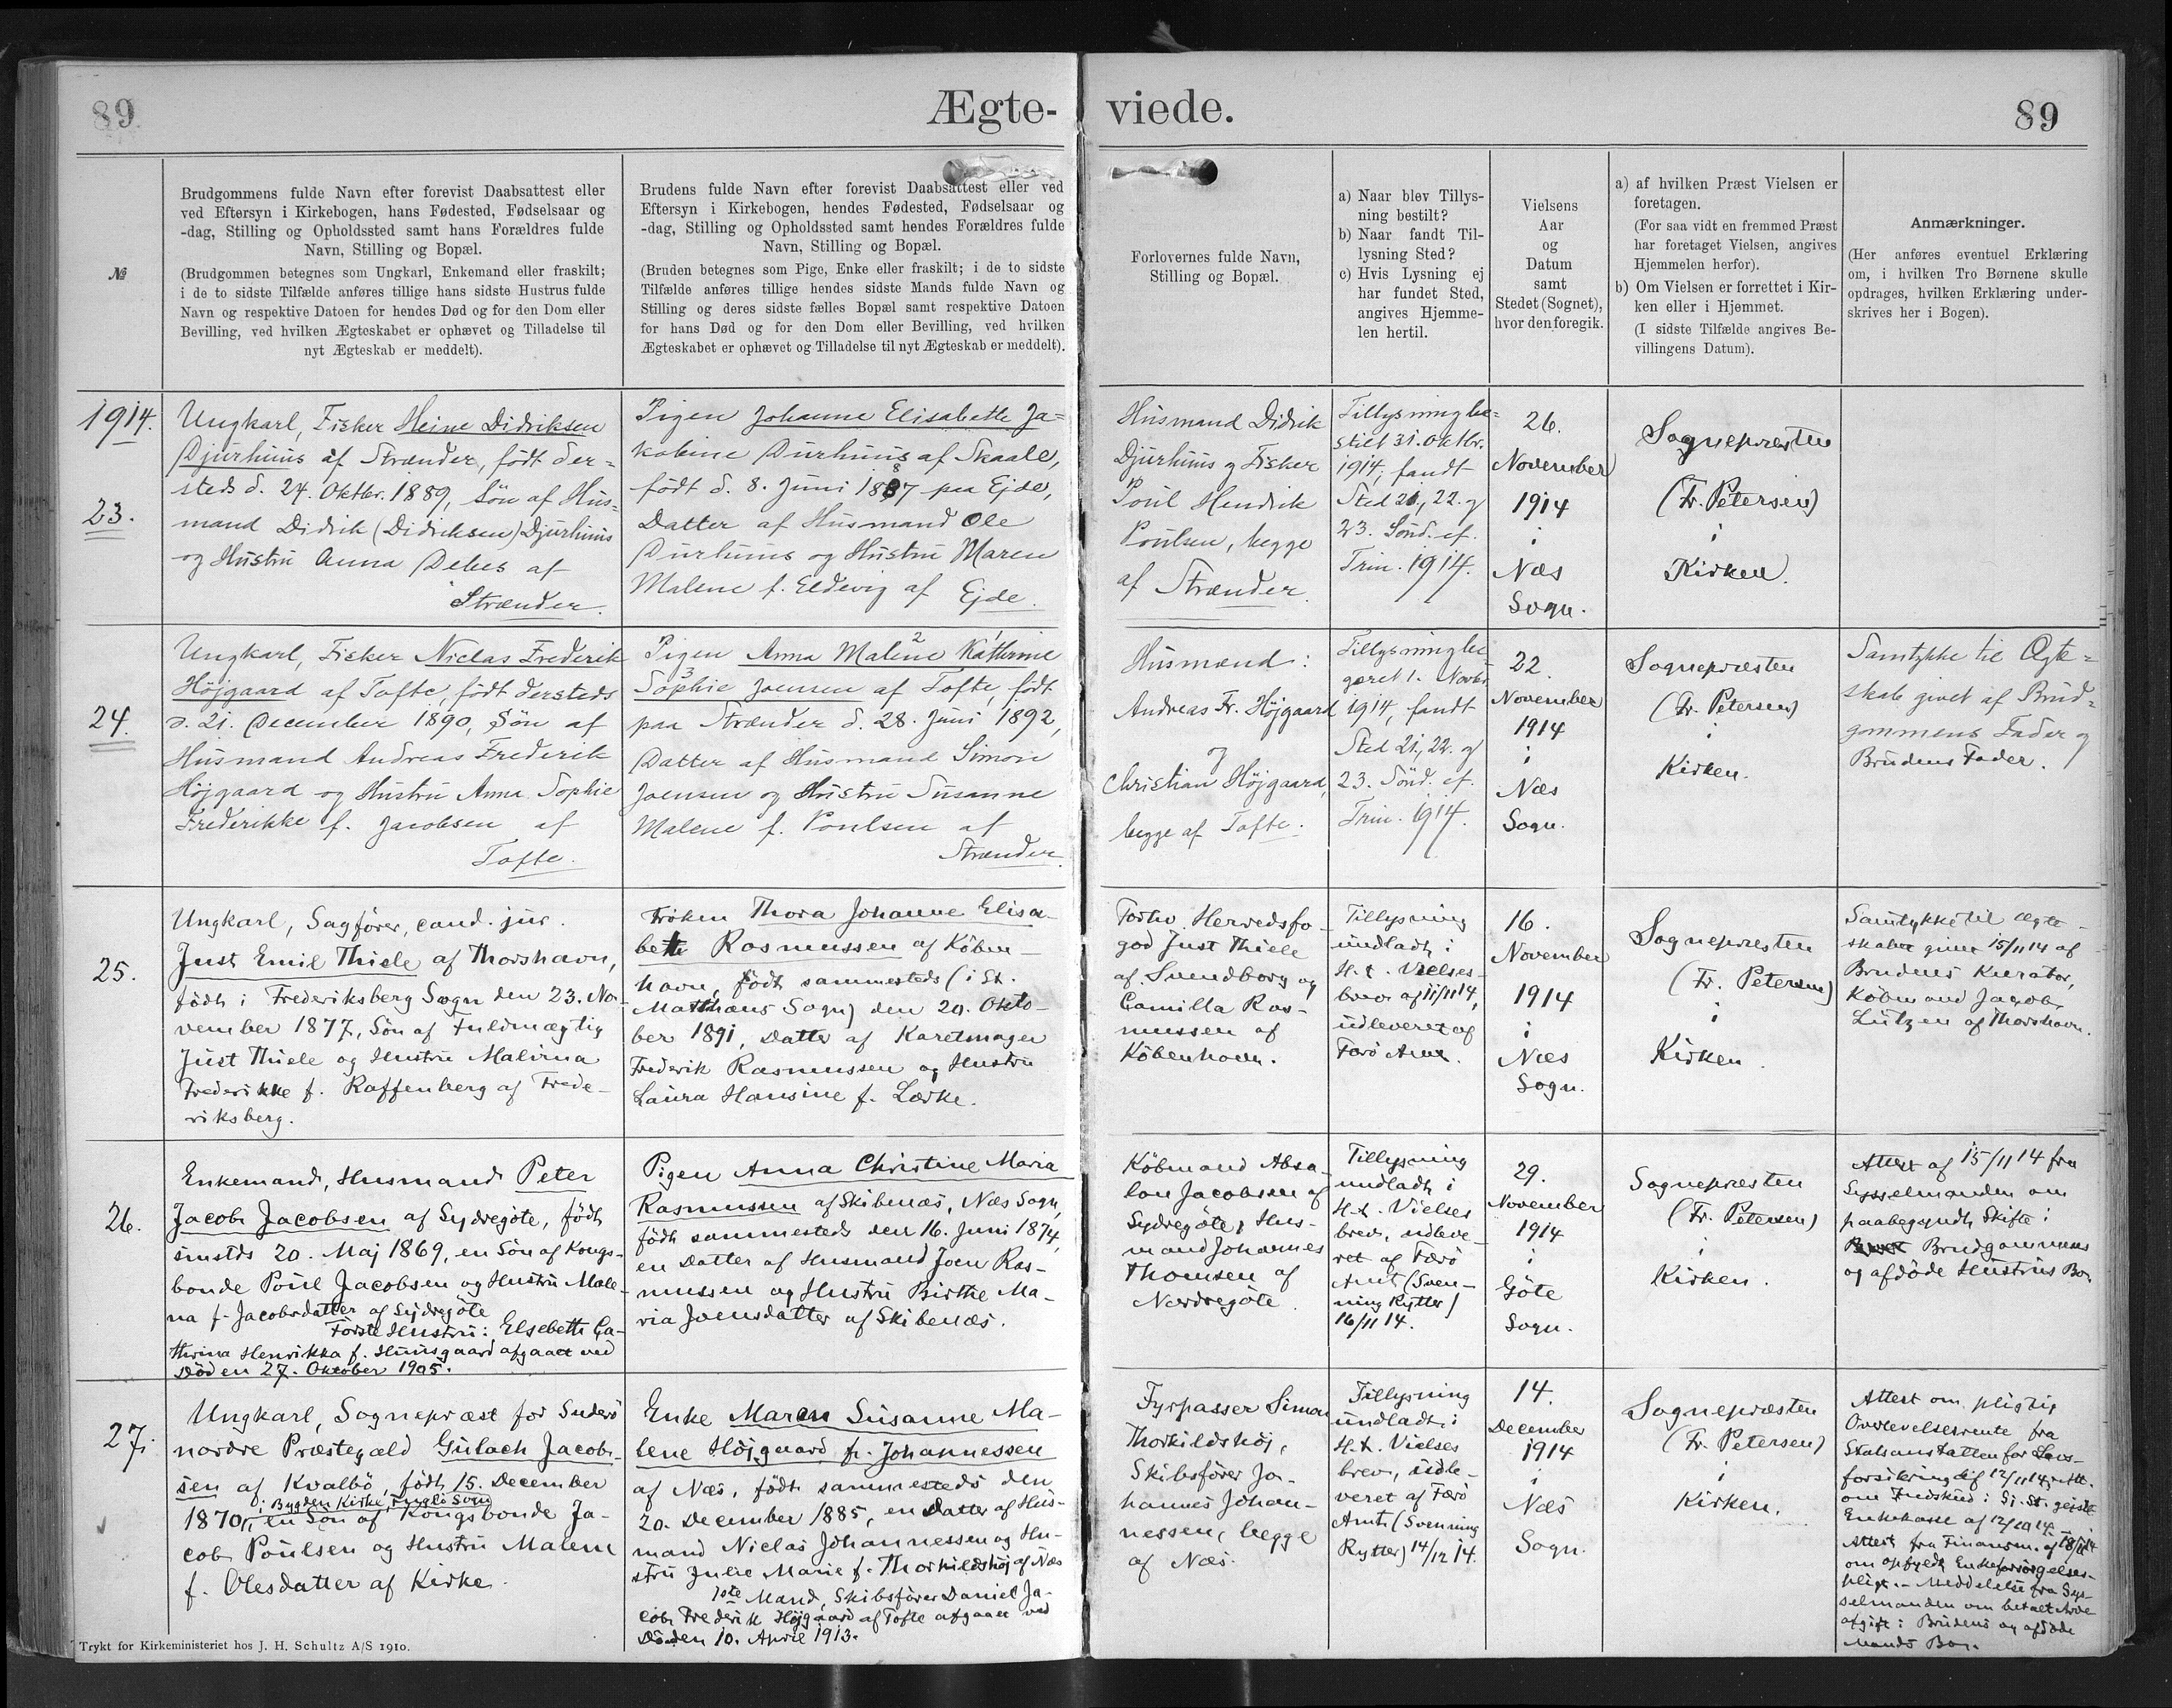 89
Ægte-
viede.
89
№
Brudgommens fulde Navn efter forevist Daabsattest eller
ved Eftersyn i Kirkebogen, hans Fødested, Fødselsaar og
-dag, Stilling og Opholdssted samt hans Forældres fulde
Navn, Stilling og Bopæl.
(Brudgommen betegnes som Ungkarl, Enkemand eller fraskilt;
i de to sidste Tilfælde anføres tillige hans sidste Hustrus fulde
Navn og respektive Datoen for hendes Død og for den Dom eller
Bevilling, ved hvilken Ægteskabet er ophævet og Tilladelse til
nyt Ægteskab er meddelt).
Brudens fulde Navn efter forevist Daabsattest eller ved
Eftersyn i Kirkebogen, hendes Fødested, Fødselsaar og
-dag, Stilling og Opholdssted samt hendes Forældres fulde
Navn, Stilling og Bopæl.
(Bruden betegnes som Pige, Enke eller fraskilt; i de to sidste
Tilfælde anføres tillige hendes sidste Mands fulde Navn og
Stilling og deres sidste fælles Bopæl samt respektive Datoen
for hans Død og for den Dom eller Bevilling, ved hvilken
Ægteskabet er ophævet og Tilladelse til nyt Ægteskab er meddelt).
Forlovernes fulde Navn,
Stilling og Bopæl.
a) Naar blev Tillys-
ning bestilt?
b) Naar fandt Til-
lysning Sted?
c) Hvis Lysning ej
har fundet Sted,
angives Hjemme-
len hertil.
Vielsens
Aar
og
Datum
samt
Stedet (Sognet),
hvor den foregik.
a) af hvilken Præst Vielsen er
foretagen.
(For saa vidt en fremmed Præst
har foretaget Vielsen, angives
Hjemmelen herfor).
b) Om Vielsen er forrettet i Kir-
ken eller i Hjemmet.
(I sidste Tilfælde angives Be-
villingens Datum).
Anmærkninger.
(Her anføres eventuel Erklæring
om, i hvilken Tro Børnene skulle
opdrages, hvilken Erklæring under-
skrives her i Bogen).
1914.
23.
Ungkarl, Fisker Heine Didriksen
Djurhuus af Strænder, født der=
steds d. 24. Oktbr. 1889, Søn af Hus=
mand Didrik (Didriksen) Djurhuus
og Hustru Anna Debes af
Strænder.
Pigen Johanne Elisabeth Ja=
kobine Durhuus af Skaale,
født d. 8. Juni 1887 paa Ejde,
Datter af Husmand Ole
Durhuus og Hustru Maren
Malene f. Eldevig af Ejde.
Husmand Didrik
Djurhuus og Fisker
Poul Hendrik
Poulsen, begge
af Strænder.
Tillysning be=
stilt 31. Oktbr.
1914, fandt
Sted 21., 22. og
23. Sønd. ef.
Trin. 1914.
26.
November
1914
i
Næs
Sogn.
Sognepræsten
(Fr. Petersen)
i
Kirken.
24.
Ungkarl, Fisker Niclas Frederik
Højgaard af Tofte, født dersteds
d. 21. December 1890, Søn af
Husmand Andreas Frederik
Højgaard og Hustru Anna Sophie
Frederikke f. Jacobsen af
Tofte.
Pigen Anna Malene 2 Kathrine 1
Sophie 3 Joensen af Tofte, født
paa Strænder d. 28. Juni 1892,
Datter af Husmand Simon
Joensen og Hustru Susanne
Malene f. Poulsen af
Strænder
Husmænd:
Andreas Fr. Højgaard
og
Christian Højgaard,
begge af Tofte.
Tillysning be
gæret 1. Novbr.
1914, fandt
Sted 21., 22. og
23. Sønd. ef.
Trin. 1914.
22.
November
1914
i
Næs
Sogn.
Sognepræsten
(Fr. Petersen)
i
Kirken.
Samtykke til Ægte=
skab givet af Brud=
gommens Fader og
Brudens Fader.
25.
Ungkarl, Sagfører, cand. jur.
Just Emil Thiele af Thorshavn,
født i Frederiksberg Sogn den 23. No-
vember 1877, Søn af Fuldmægtig
Just Thiele og Hustru Malvina
Frederikke f. Raffenberg af Frede-
riksberg.
Frøken Thora Johanne Elisa-
beth Rasmussen af Køben-
havn, født sammesteds (i St.
Matthæus Sogn) den 20. Okto-
ber 1891, Datter af Karetmager
Frederik Rasmussen og Hustru
Laura Hansine f. Lærke.
Forhv. Herredsfo-
god Just Thiele
af Svendborg og
Camilla Ras-
mussen af
København.
Tillysning
undladt i
H. t. Vielses-
brev af 11/11 14,
udleveret af
Færø Amt.
16.
November
1914
i
Næs
Sogn.
Sognepræsten
(Fr. Petersen)
i
Kirken.
Samtykke til Ægte-
skabet givet 15/11 14 af
Brudens Kurator,
Købmand Jacob
Lützen af Thorshavn.
26.
Enkemand, Husmand Peter
Jacob Jacobsen af Sydregøte, født
smstds 20. Maj 1869, en Søn af Kongs-
bonde Poul Jacobsen og Hustru Male-
na f. Jacobsdatter af Sydregøte
Første Hustru: Elsebeth Ca-
thrina Henrikka f. Huusgaard afgaaet ved
Døden 27. Oktober 1905.
Pigen Anna Christine Maria
Rasmussen af Skibenæs, Næs Sogn,
født sammesteds den 16. Juni 1874,
en Datter af Husmand Joen Ras-
mussen og Hustru Birthe Ma-
ria Joensdatter af Skibenæs.
Købmand Absa-
lon Jacobsen af
Sydregøte, Hus-
mand Johannes
Thomsen af
Nordregøte.
Tillysning
undladt i
H. t. Vielses
brev, udleve-
ret af Færø
Amt (Sven-
ning Rytter)
16/11 14.
29.
November
1914
i
Gøte
Sogn.
Sognepræsten
(Fr. Petersen)
i
Kirken.
Attest af 15/11 14 fra
Sysselmanden om
paabegyndt Skifte i
Brudgommens
og afdøde Hustrus Bo.
27.
Ungkarl, Sognepræst for Suderø
nordre Præstegæld Gulach Jacob-
sen af Kvalbø, født 15. December
i Bygden Kirke, Fuglø Sogn
1870, en Søn af Kongsbonde Ja-
cob Poulsen og Hustru Malene
f. Olesdatter af Kirke.
Enke Maren Susanne Ma-
lene Højgaard f. Johannessen
af Næs, født sammesteds den
20. December 1885, en Datter af Hus-
mand Niclas Johannessen og Hu-
stru Julie Marie f. Thorkildshøj af Næs
1ste Mand, Skibsfører Daniel Ja-
cob Frederik Højgaard af Tofte afgaaet ved
Døden 10. April 1913.
Fyrpasser Simon
Thorkildshøj,
Skibsfører Jo-
hannes Johan-
nessen, begge
af Næs.
Tillysning
undladt i
H. t. Vielses
brev, udle-
veret af Færø
Amt (Svenning
Rytter) 14/12 14.
14.
December
1914
i
Næs
Sogn.
Sognepræsten
(Fr. Petersen)
i
Kirken.
Attest om pligtig
Overlevelsesrente fra
Statsanstalten for Livs-
forsikring af 12/11 14,
om Indskud i
Enkekasse af
Attest fra Finansm. af
om opfyldt Enkeforsørgelses-
pligt. - Meddelelse fra Sys-
selmanden om betalt Arve
afgift i Brudens og afdøde
Mands Bo.
Trykt for Kirkeministeriet hos J. H. Schultz A/S 1910.